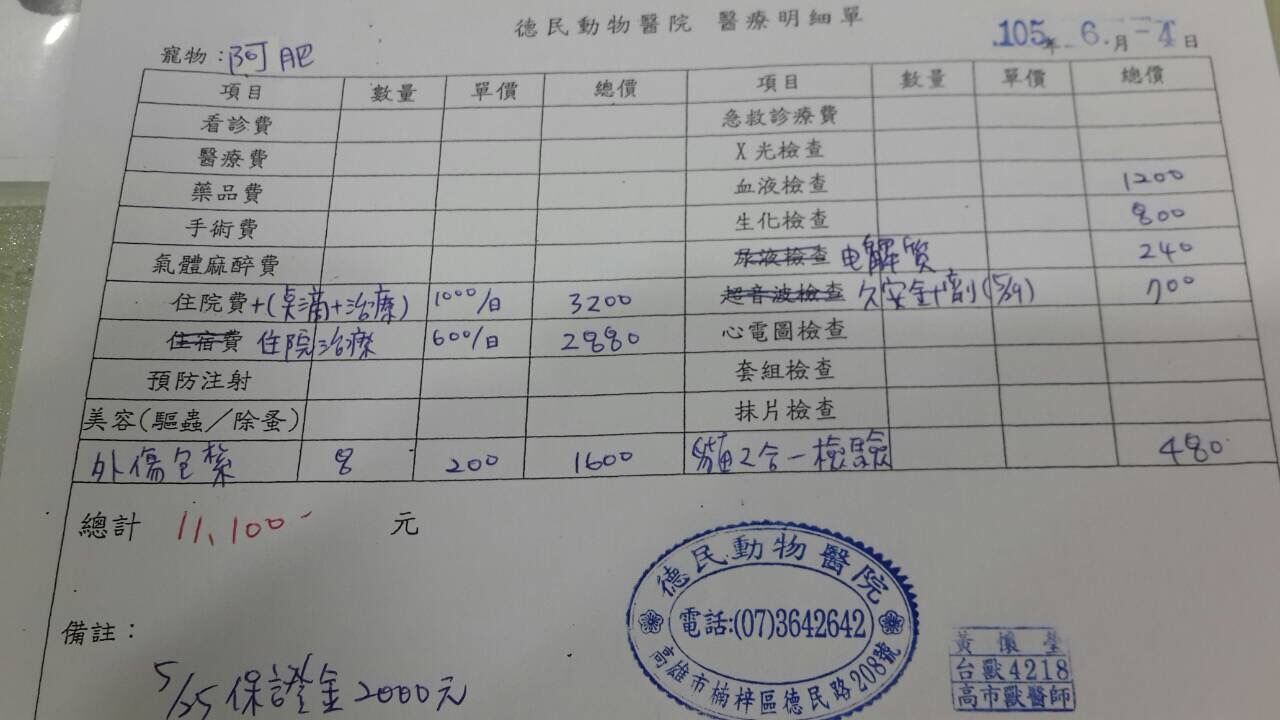 德民動物醫院 醫療明細單
105年 6.月 -4日
寵物:阿肥
項目 數量 單價 總價 項目 數量 單價 總價
看診費 急救診療費
醫療費 X光檢查
藥品費 血液檢查 1200
手術費 生化檢查 800
氣體麻醉費 尿液檢查 电解质 240
住院費+(点滴+治療) 1000/日 3200 超音波檢查 (5/29) 700
住宿費 住院治療 600/日 2880 心電圖檢查
預防注射 套組檢查
美容(驅蟲/除蚤) 抹片檢查
外傷包紮 8 200 1600 貓2合一檢驗 480
總計 11,100 元
備註:
5/25 保證金2000元
德民動物醫院
電話:(07)3642642
高雄市楠梓區德民路208號
黃懷
台獸4218
高市獸醫師